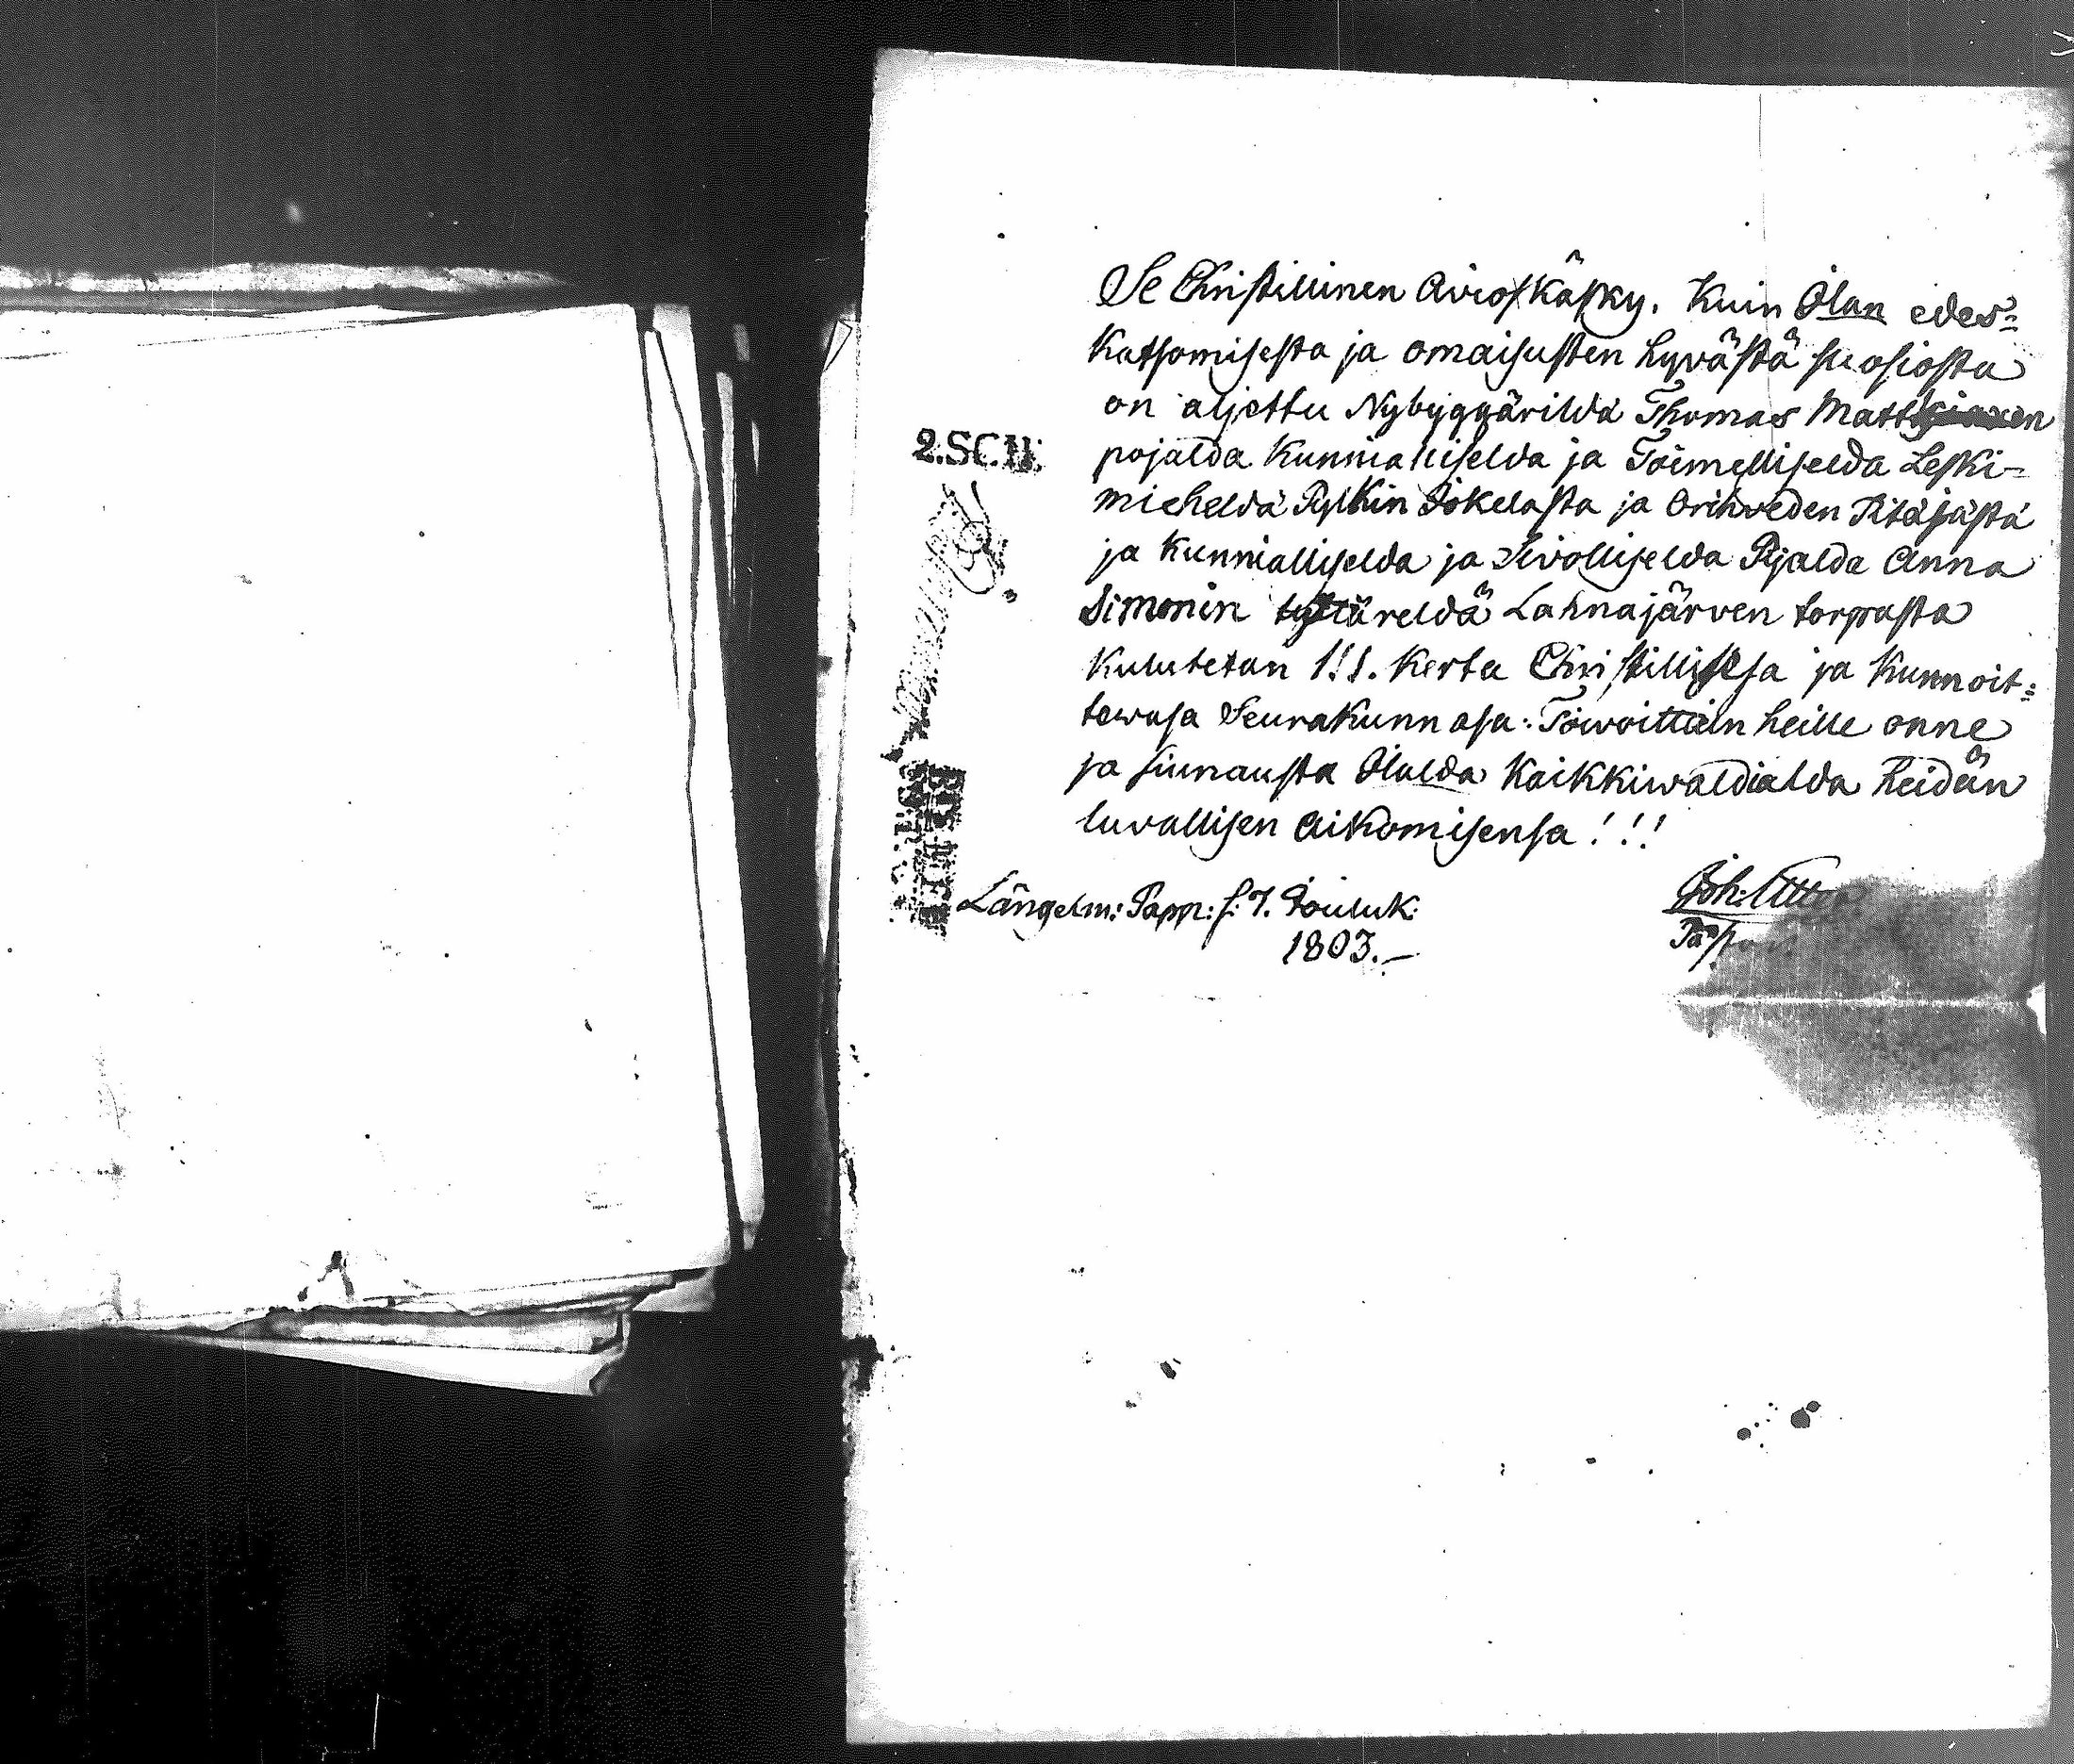 Se Christillinen AviosKäsky. Kuin Jlan edes=
Katsomisesta ja omaisusten hyvästä suosiosta
on aljettu Nybyggärildä Thomas Matt
pojalda Kunnialliselda ja Toimelliselda Leski=
mieheldä Pylkin Jokelasta ja Orihveden Pitäjästä
ja Kunnialliselda ja Sivolliselda Pijalda Anna
Simonin tyttäreldä Lahnajärven torpasta
Kulutetan 1!1. Kerta Christillisesä ja Kunnoit=
tawasa Seurakunnasa: Toiwoittain heille onne
ja siunausta Jlalda Kaikkiwaldialda heidän
luvallisen Aikomisensa!!!
2.SC.
Längelm: Papp: s: 7. Jouluk:
1803.—
Joh: